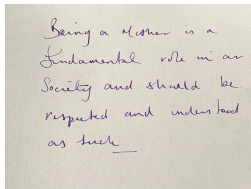 Being a Mother is a
fundamental role in our
Society and should be
respected and understood
as such